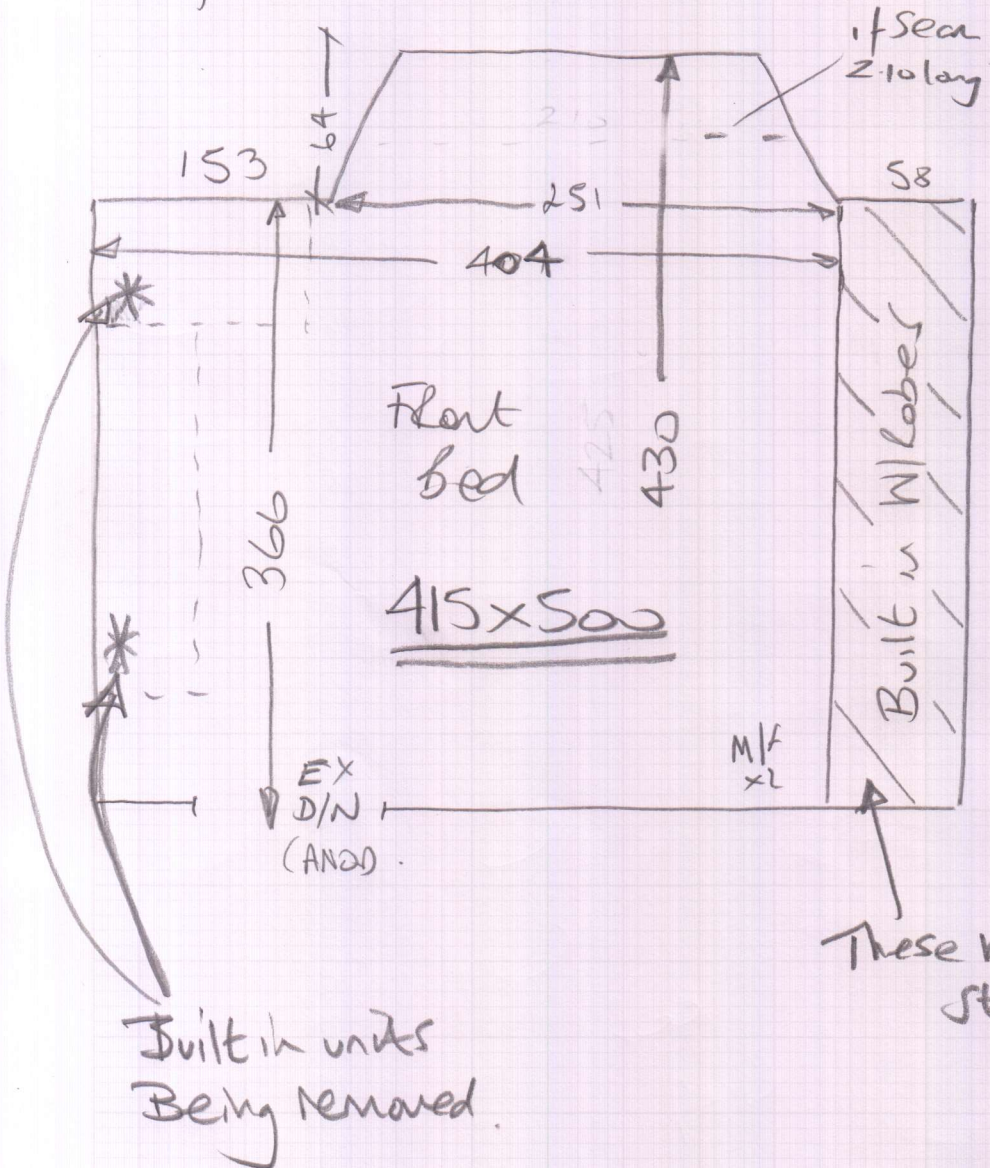 if Seam
2.10 long
64
153
251
58
404
210
Front
bed
425
430
366
415x500
Built in W/Robes
M/f
x2
EX
D/N
(ANOD.
These
st
Built in units
Being removed.